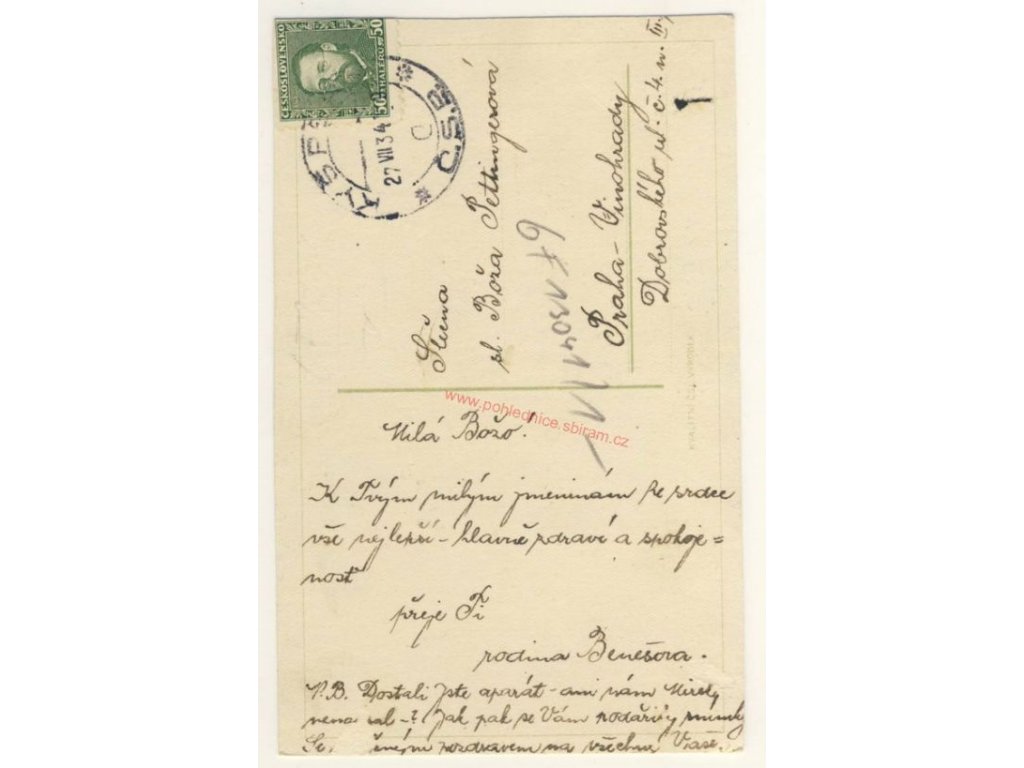 ČESKOSLOVENSKO
50 HALÉRŮ 50
27 VII 34
Č.S.R.
Slečna
sl. Boža Pettingerová
Praha - Vinohrady
Dobrovského ul. č. 4. n. III.
www.pohlednice.sbiram.cz
Milá Božo!
K Tvým milým jmeninám ze srdce
vše nejlepší - hlavně zdraví a spokoje=
nost
přeje Ti
rodina Benešova.
P.B. Dostali jste aparát - ani nám Mirek
Jak pak se Vám podařily snímky
pozdravem na všechny Vaše.